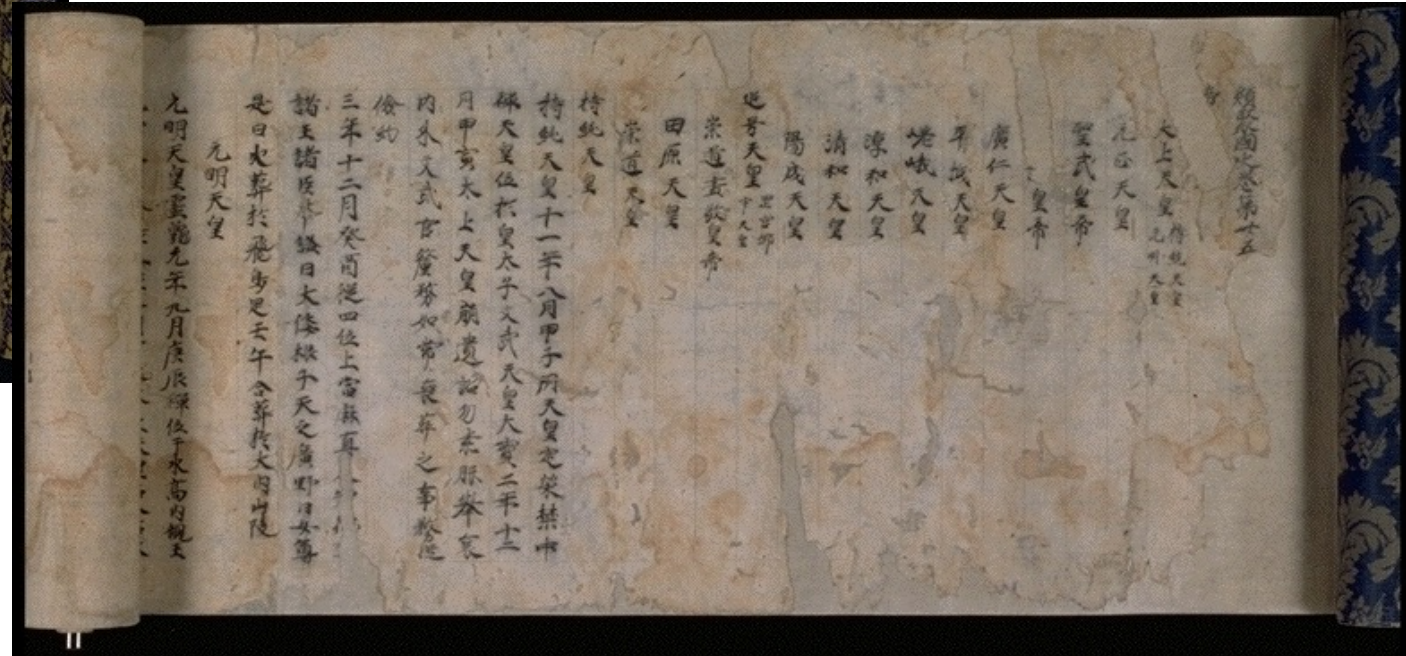 類聚國史巻第廿五
大上天皇 持統天皇 元明天皇
元正天皇
聖武皇帝
皇帝
廣仁天皇
平城天皇
嵯峨天皇
淳和天皇
清和天皇
陽成天皇
追号天皇
崇道盡敬皇帝
田原天皇
崇道天皇
持統天皇
持統天皇十一年八月甲子朔天皇定策禁中
禪天皇位於皇太子文武天皇大寶二年十二
月甲寅太上天皇崩遺詔勿素服擧哀
内外文武官釐務如常喪葬之事務従
儉約
三年十二月癸酉従四位上當麻真
諸王諸臣奉誄諡曰大倭根子天之廣野日女尊
是日火葬於飛鳥岡壬午合葬於大内山陵
元明天皇
元明天皇霊龜元年九月庚辰禪位于氷高内親王